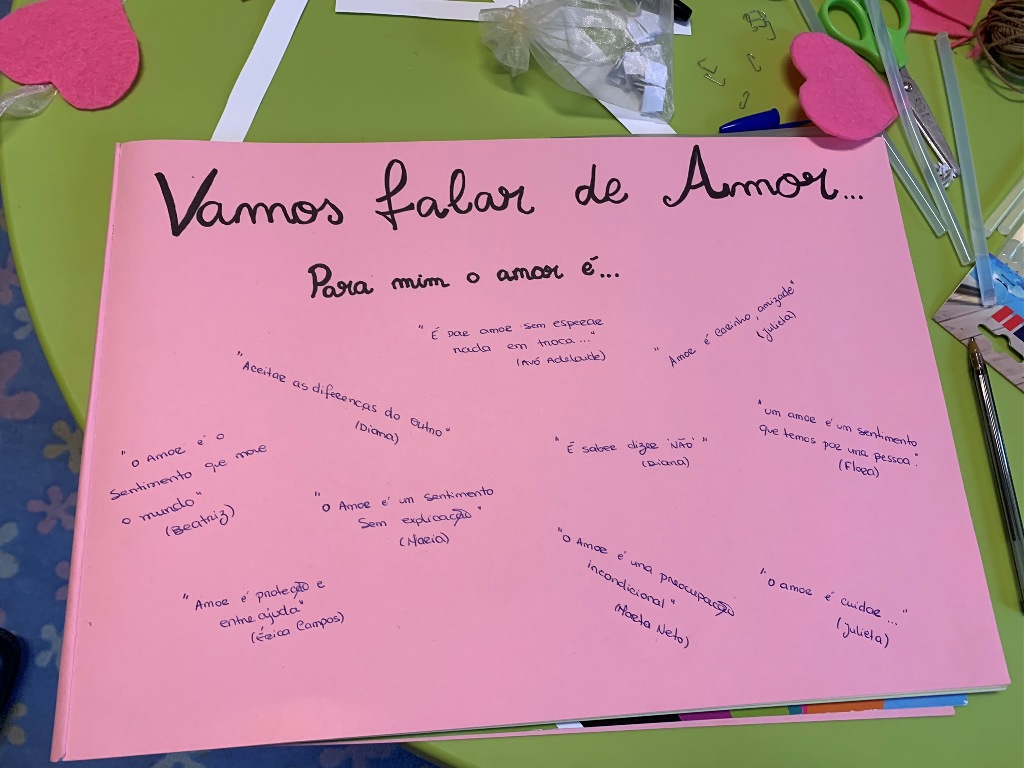 Vamos falar de Amor...
Para mim o amor é...
"É DAR amor sem esperar
nada em troca..."
(Avó Adelaide)
"Amor é carinho, amizade"
(Julieta)
"Aceitar as diferenças do outro"
(Diana)
"um amor é um sentimento
que temos por uma pessoa."
(Flora)
"É saber dizer 'NÃO'"
(Diana)
"O Amor é o
sentimento que move
o mundo"
(Beatriz)
"O Amor é um sentimento
sem explicação"
(Maria)
"O Amor é uma preocupação
incondicional"
(Marta Neto)
"O amor é cuidar..."
(Julieta)
"Amor é proteção e
entre ajuda"
(Érica Campos)